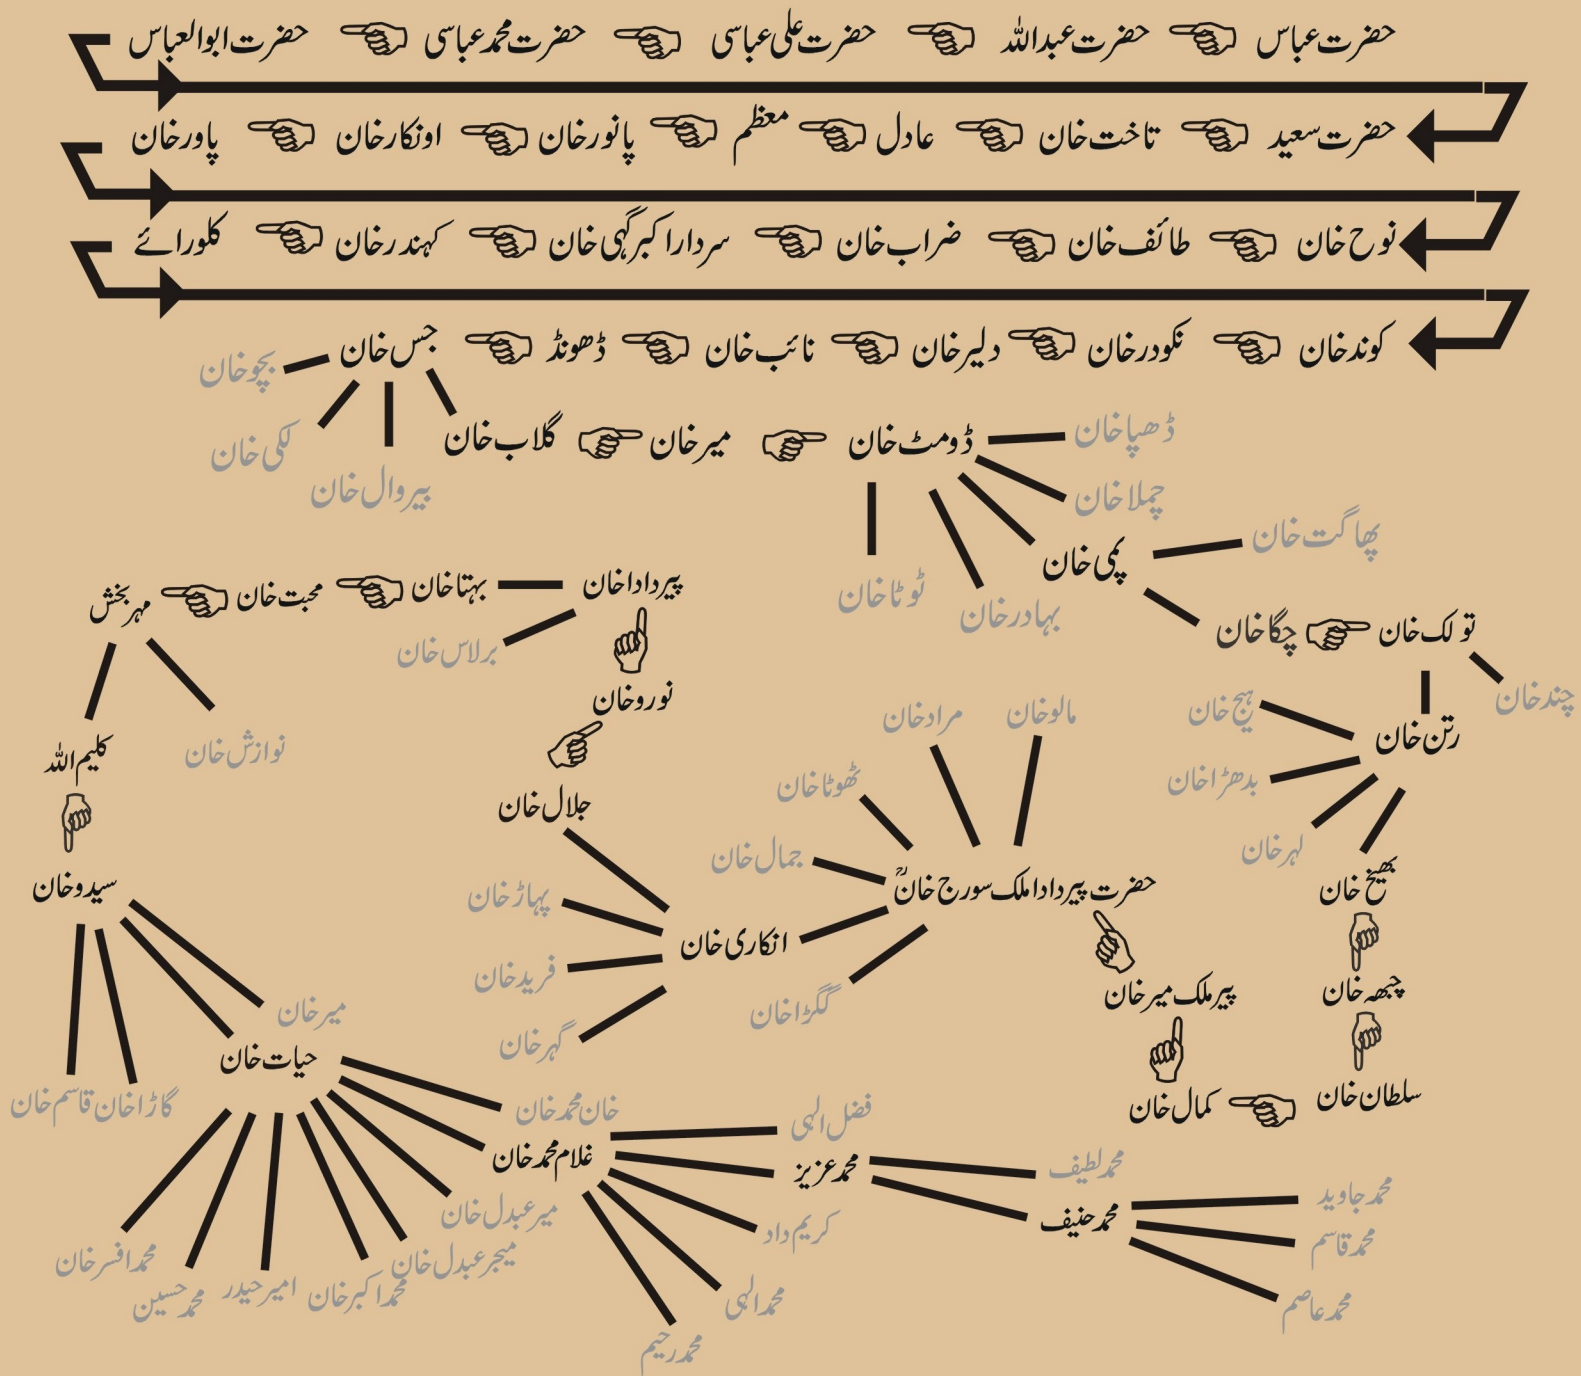 حضرت عباس حضرت عبداللہ حضرت علی عباسی حضرت محمد عباسی حضرت ابوالعباس
حضرت سعید تاخت خان عادل معظم پانور خان اونکار خان پاور خان
نوح خان طائف خان ضراب خان سردار اکبر گہی خان کہندر خان کلورائے
کوند خان نکودر خان دلیر خان نائب خان ڈھونڈ جس خان
بجو خان
لکی خان
بیروال خان
گلاب خان میر خان ڈومٹ خان ڈھپا خان
چملا خان
پمی خان پھاگت خان
ٹوٹا خان
بہادر خان
چگا خان تولک خان
چند خان
رتن خان
ہیج خان
بدھڑا خان
لہر خان
بھیخ خان
چبھہ خان
سلطان خان
کمال خان
پیر ملک میر خان
حضرت پیر دادا ملک سورج خانؒ
مالو خان
مراد خان
ٹھوٹا خان
جمال خان
گگڑا خان
انکاری خان
پہاڑ خان
فرید خان
گہر خان
جلال خان
نورو خان
پیر دادا خان
بہتا خان
برلاس خان
محبت خان
مہر بخش
نوازش خان
کلیم اللہ
سیدو خان
میر خان
حیات خان
گاڑا خان
قاسم خان
خان محمد خان
غلام محمد خان
میر عبدل خان
میجر عبدل خان
محمد اکبر خان
امیر حیدر
محمد حسین
محمد افسر خان
فضل الہی
محمد عزیز
کریم داد
محمد الہی
محمد رحیم
محمد لطیف
محمد حنیف
محمد جاوید
محمد قاسم
محمد عاصم